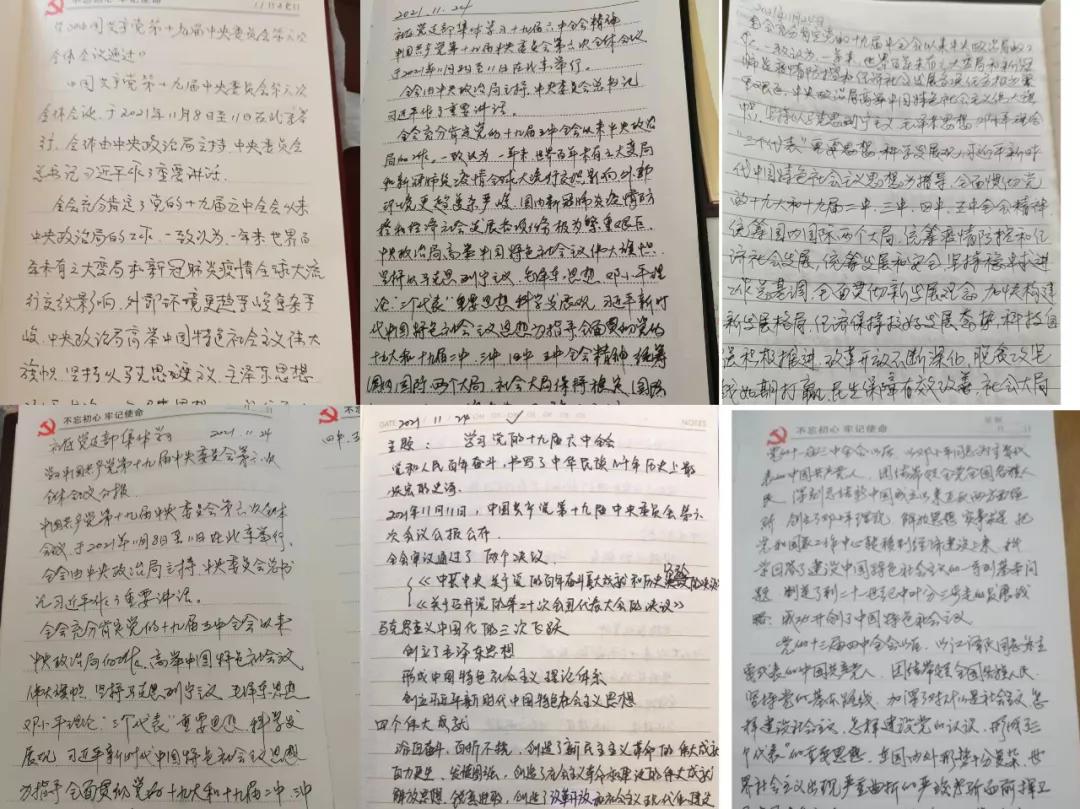 不忘初心 牢记使命
11月24日
中国共产党第十九届中央委员会第六次
全体会议通过
中国共产党第十九届中央委员会第六次
全体会议,于2021年11月8日至11日在北京举
行。全体由中央政治局主持,中央委员会
总书记习近平作了重要讲话。
全会充分肯定了党的十九届五中全会以来
中央政治局的工作。一致认为,一年来,世界百
年未有之大变局和新冠肺炎疫情全球大流
行交织影响,外部环境更趋
峻,中央政治局高举中国特色社会主义伟大
旗帜,坚持以马克思主义、毛泽东思想
2021.11.24
社区党支部集体学习十九届六中全会精神
中国共产党第十九届中央委员会第六次全体会议
于2021年11月8日至11日在北京举行。
全会由中央政治局主持,中央委员会总书记
习近平作了重要讲话。
全会充分肯定党的十九届五中全会以来中央政治
局的工作。一致认为,一年来,世界百年未有之大变局
和新冠肺炎疫情全球大流行交织影响,外部
环境更趋复杂严峻,国内新冠肺炎疫情防
控和经济社会发展各项任务极为繁重艰巨。
中央政治局高举中国特色社会主义伟大旗帜,
坚持以马克思列宁主义、毛泽东思想、邓小平理
论、“三个代表”重要思想、科学发展观、习近平新时
代中国特色社会主义思想为指导,全面贯彻党的
十九大和十九届二中、三中、四中、五中全会精神,统筹
国内国际两个大局,社会大局保持稳定,国防
2021年11月24日
全会充分肯定党的十九届五中全会以来中央政治局的工
作。一致认为,一年来,世界百年未有之大变局和新冠
中央政治局高举中国特色社会主义伟大旗
帜,坚持以马克思列宁主义、毛泽东思想、邓小平理论
“三个代表”重要思想、科学发展观、习近平新时
代中国特色社会主义思想为指导,全面贯彻党
的十九大和十九届二中、三中、四中、五中全会精神,
统筹国内国际两个大局,统筹疫情防控和经
济社会发展,统筹发展和安全,坚持稳中求进
工作总基调,全面贯彻新发展理念,加快构建
新发展格局,经济保持较好发展态势,科技自
强积极推进,改革开放不断深化,脱贫攻坚
战如期打赢,民生保障有效改善,社会大局
不忘初心 牢记使命
社区党支部集体学习 2021.11.24
学习中国共产党第十九届中央委员会第六次
全体会议公报
中国共产党第十九届中央委员会第六次全体
会议,于2021年11月8日至11日在北京举行。
全会由中央政治局主持,中央委员会总书
记习近平作了重要讲话。
全会充分肯定党的十九届五中全会以来
中央政治局的工作。高举中国特色社会主义
伟大旗帜,坚持马克思列宁主义、毛泽东思想
邓小平理论、“三个代表”重要思想、科学发
展观、习近平新时代中国特色社会主义思想
为指导,全面贯彻党的十九大和十九届二中、三中
四中、五
DATE 2021.11.24
NOTES
主题:学习党的十九届六中全会
党和人民百年奋斗,书写了中华民族几千年历史上最
恢宏的史诗。
2021年11月11日,中国共产党第十九届中央委员会第六
次会议公报公布.
全会审议通过了两个决议
《中共中央关于党的百年奋斗重大成就和历史经验的决议》
《关于召开党的第二十次全国代表大会的决议》
马克思主义中国化的三次飞跃
创立了毛泽东思想
形成中国特色社会主义理论体系
创立习近平新时代中国特色社会主义思想
四个伟大成就
浴血奋斗、百折不挠,创造了新民主主义革命的伟大成就
自力更生、发愤图强,创造了社会主义革命和建设的伟大成就
解放思想、锐意进取,创造了改革开放和社会主义现代化建设
不忘初心 牢记使命
党的十一届三中全会以后,以邓小平同志为主要代
表的中国共产党人,团结带领全党全国各族人
民,深刻总结新中国成立以来正反两方面经
验,创立了邓小平理论,解放思想,实事求是,把
党和国家工作中心转移到经济建设上来,科
学回答了建设中国特色社会主义的一系列基本问
题,制定了到二十一世纪中叶分三步走的发展战
略,成功开创了中国特色社会主义。
党的十三届四中全会以后,以江泽民同志为主
要代表的中国共产党人,团结带领全国各族人民,
坚持党的基本路线,加深了对什么是社会主义、怎
样建设社会主义,怎样建设党的认识,形成“三
个代表”重要思想,在国内外形势十分复杂、世
界社会主义出现严重曲折的严峻考验面前捍卫